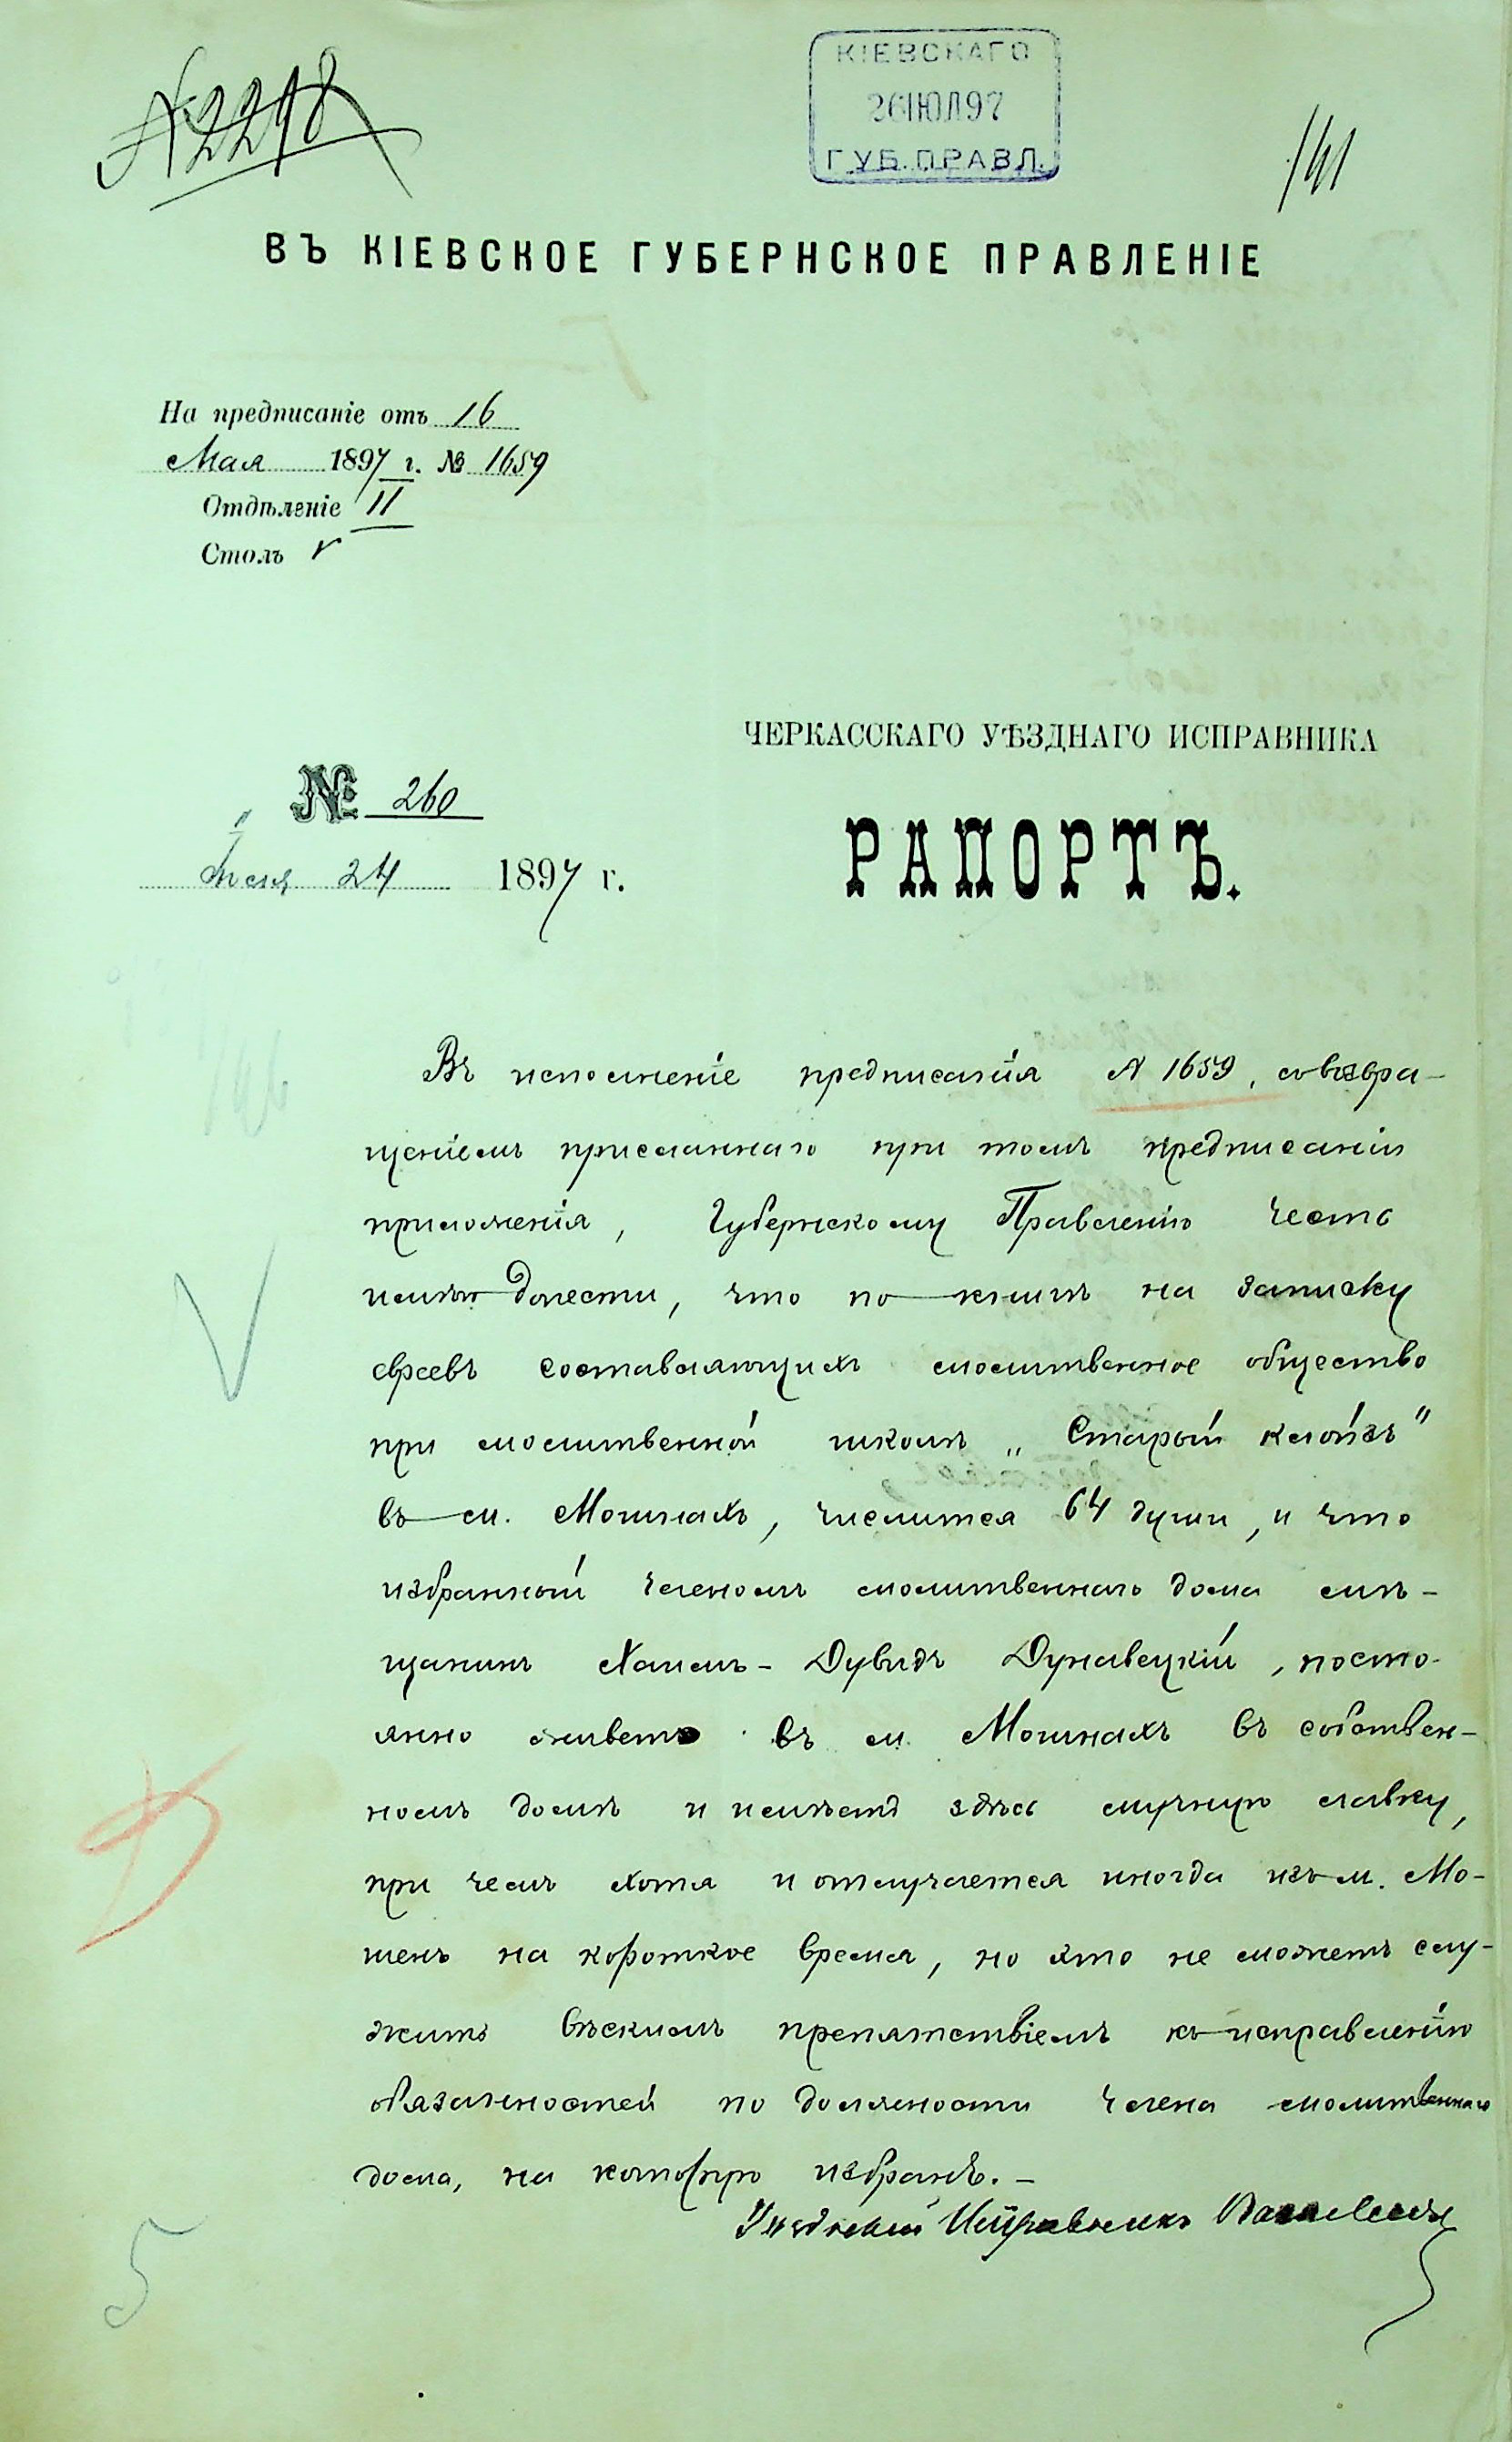 № 2298
КІЕВСКАГО
26 ІЮЛ 97
ГУБ. ПРАВЛ.
141
ВЪ КІЕВСКОЕ ГУБЕРНСКОЕ ПРАВЛЕНІЕ
На предписаніе отъ 16
Мая 1897 г. № 1659
Отдѣленіе II
Столъ
ЧЕРКАССКАГО УѢЗДНАГО ИСПРАВНИКА
№ 260
24 1897 г.
РАПОРТЪ.
Въ исполненіе предписанія № 1659, съ возвра-
щеніемъ присланнаго при томъ предписаніи
приложенія, Губернскому Правленію честь
имѣю донести, что по книгѣ на записку
евреевъ составляющихъ молитвенное общество
при молитвенной школѣ „Старый клойзъ"
въ м. Мошнахъ, числится 64 души, и что
избранный членомъ молитвеннаго дома мѣ-
щанинъ Хаимъ-Дувидъ Дунавецкій, посто-
янно живетъ въ м. Мошнахъ въ собствен-
номъ домѣ и имѣетъ здѣсь мучную лавку,
при чемъ хотя и отлучается иногда изъ м. Мо-
шенъ на короткое время, но это не можетъ слу-
жить вѣскимъ препятствіемъ къ исправленію
обязанностей по должности члена молитвеннаго
дома, на которую избранъ.-
Уѣздный Исправникъ
5